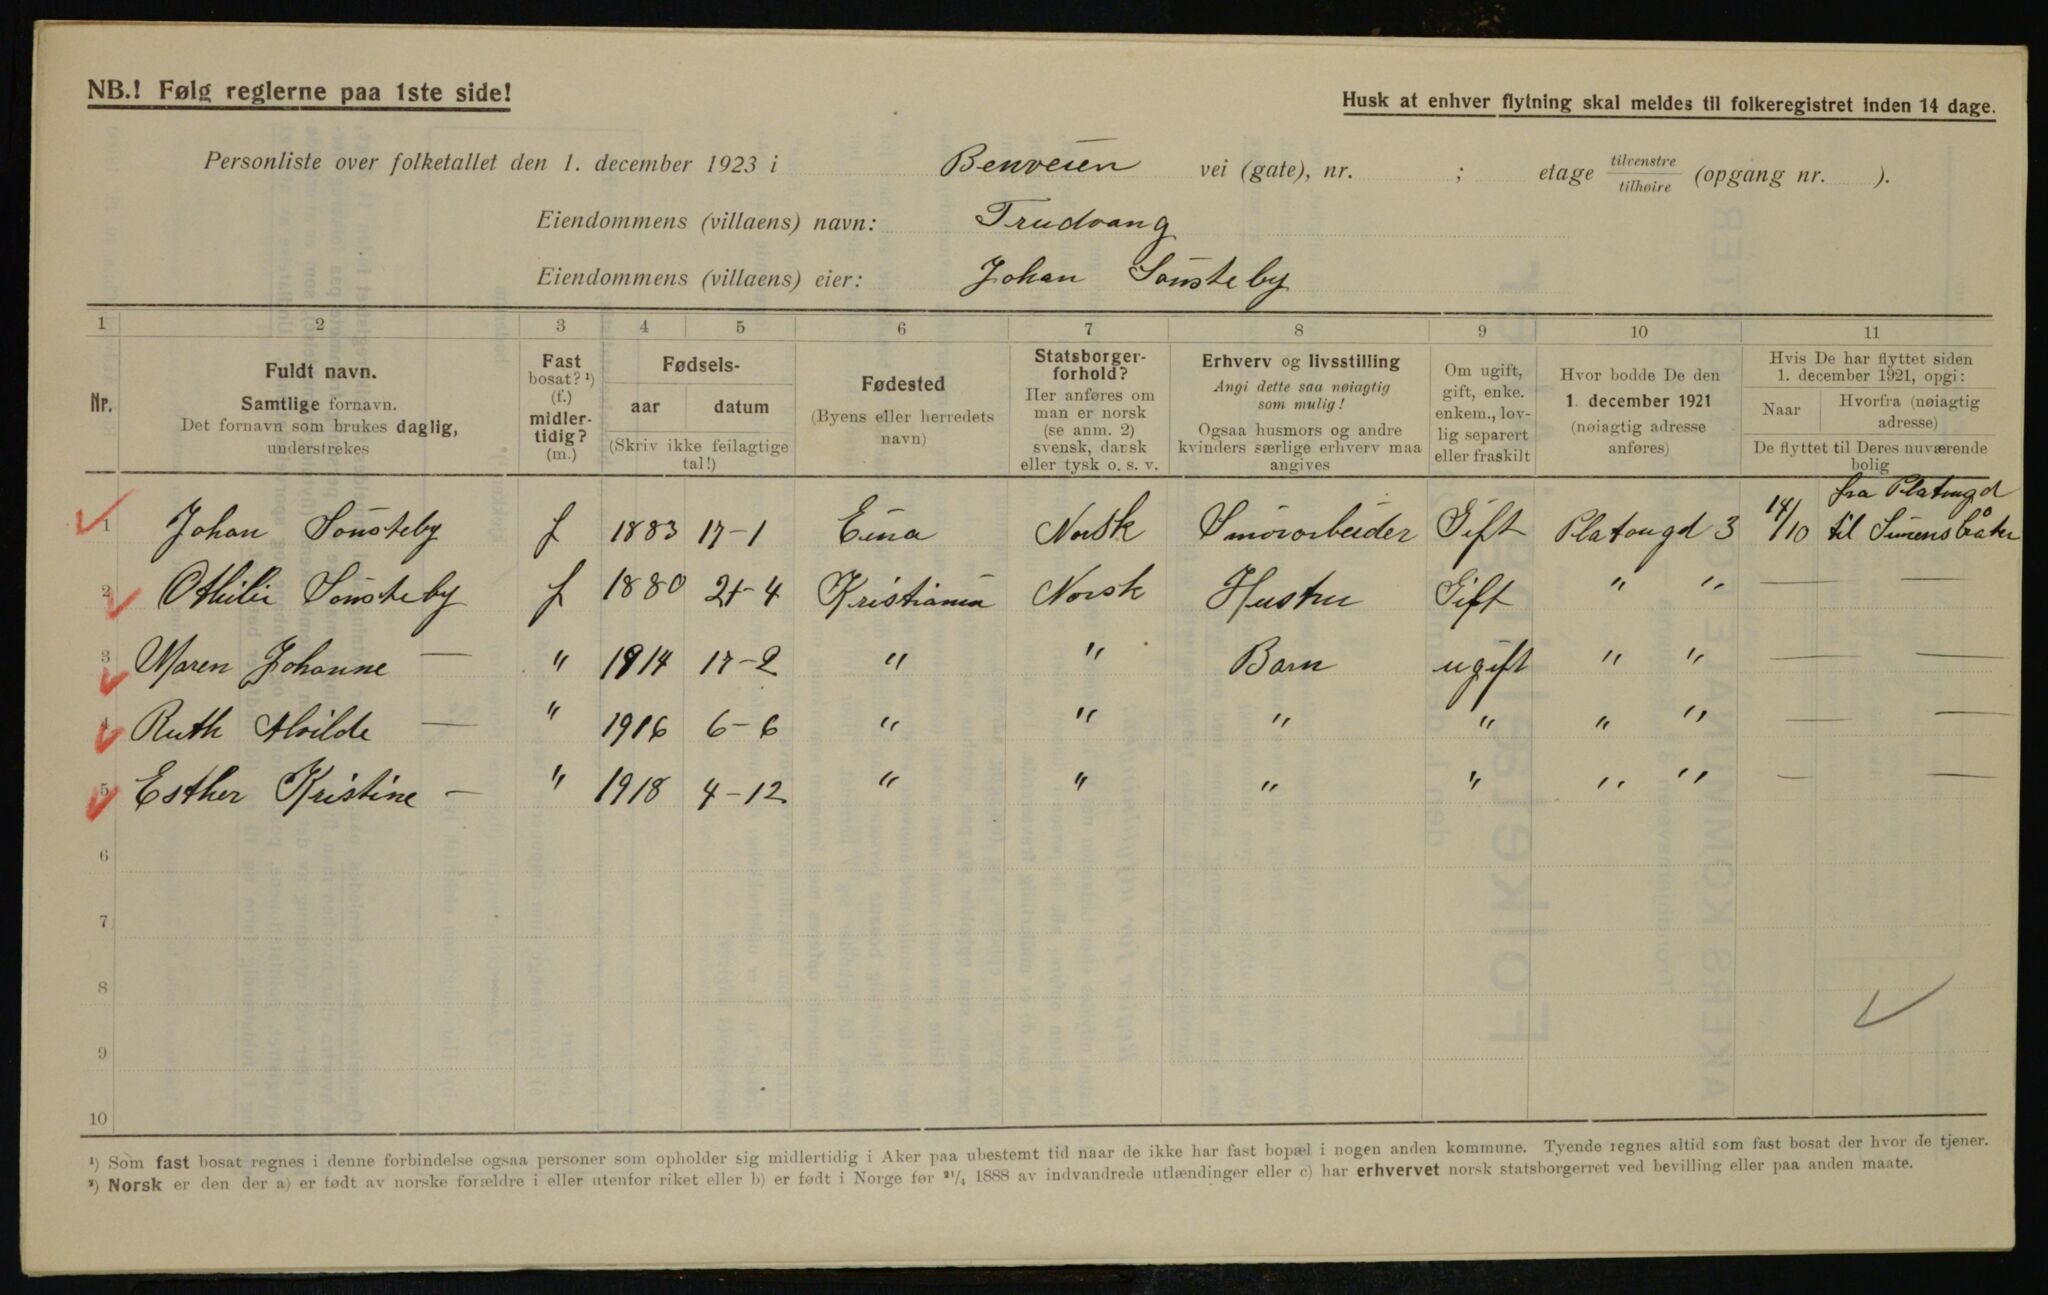 NB.! Følg reglerne paa 1ste side!
Husk at enhver flytning skal meldes til folkeregistret inden 14 dage.
Personliste over folketallet den 1. december 1923 i Benveien vei (gate), nr. ; etage tilvenstre tilhøire (opgang nr. ).
Eiendommens (villaens) navn: Trudvang
Eiendommens (villaens) eier: Johan Sønsteby
1 2 3 4 5 6 7 8 9 10 11
Nr.
Fuldt navn.
Samtlige fornavn.
Det fornavn som brukes daglig,
understrekes
Fast
bosat? ¹)
(f.)
midler-
tidig?
(m.)
Fødsels-
aar datum
(Skriv ikke feilagtige
tal!)
Fødested
(Byens eller herredets
navn)
Statsborger-
forhold?
Her anføres om
man er norsk
(se anm. 2)
svensk, dansk
eller tysk o. s. v.
Erhverv og livsstilling
Angi dette saa nøiagtig
som mulig!
Ogsaa husmors og andre
kvinders særlige erhverv maa
angives
Om ugift,
gift, enke.
enkem., lov-
lig separert
eller fraskilt
Hvor bodde De den
1. december 1921
(nøiagtig adresse
anføres)
Hvis De har flyttet siden
1. december 1921, opgi:
Naar
Hvorfra (nøiagtig
adresse)
De flyttet til Deres nuværende
bolig
1 Johan Sønsteby f 1883 17-1 Eina Norsk Smørarbeider Gift Platougd 3 14/10 fra Platougd
til
2 Othilie Sønsteby f 1880 21-4 Kristiania Norsk Hustru Gift " " — —
3 Maren Johanne — " 1914 17-2 " " Barn ugift " " — —
4 Ruth Alvilde — " 1916 6-6 " " " " " " — —
5 Esther Kristine — " 1918 4-12 " " " " " " — —
6
7
8
9
10
¹) Som fast bosat regnes i denne forbindelse ogsaa personer som opholder sig midlertidig i Aker paa ubestemt tid naar de ikke har fast bopæl i nogen anden kommune. Tyende regnes altid som fast bosat der hvor de tjener.
²) Norsk er den der a) er født av norske forældre i eller utenfor riket eller b) er født i Norge før ²¹/₄ 1888 av indvandrede utlændinger eller c) har erhvervet norsk statsborgerret ved bevilling eller paa anden maate.